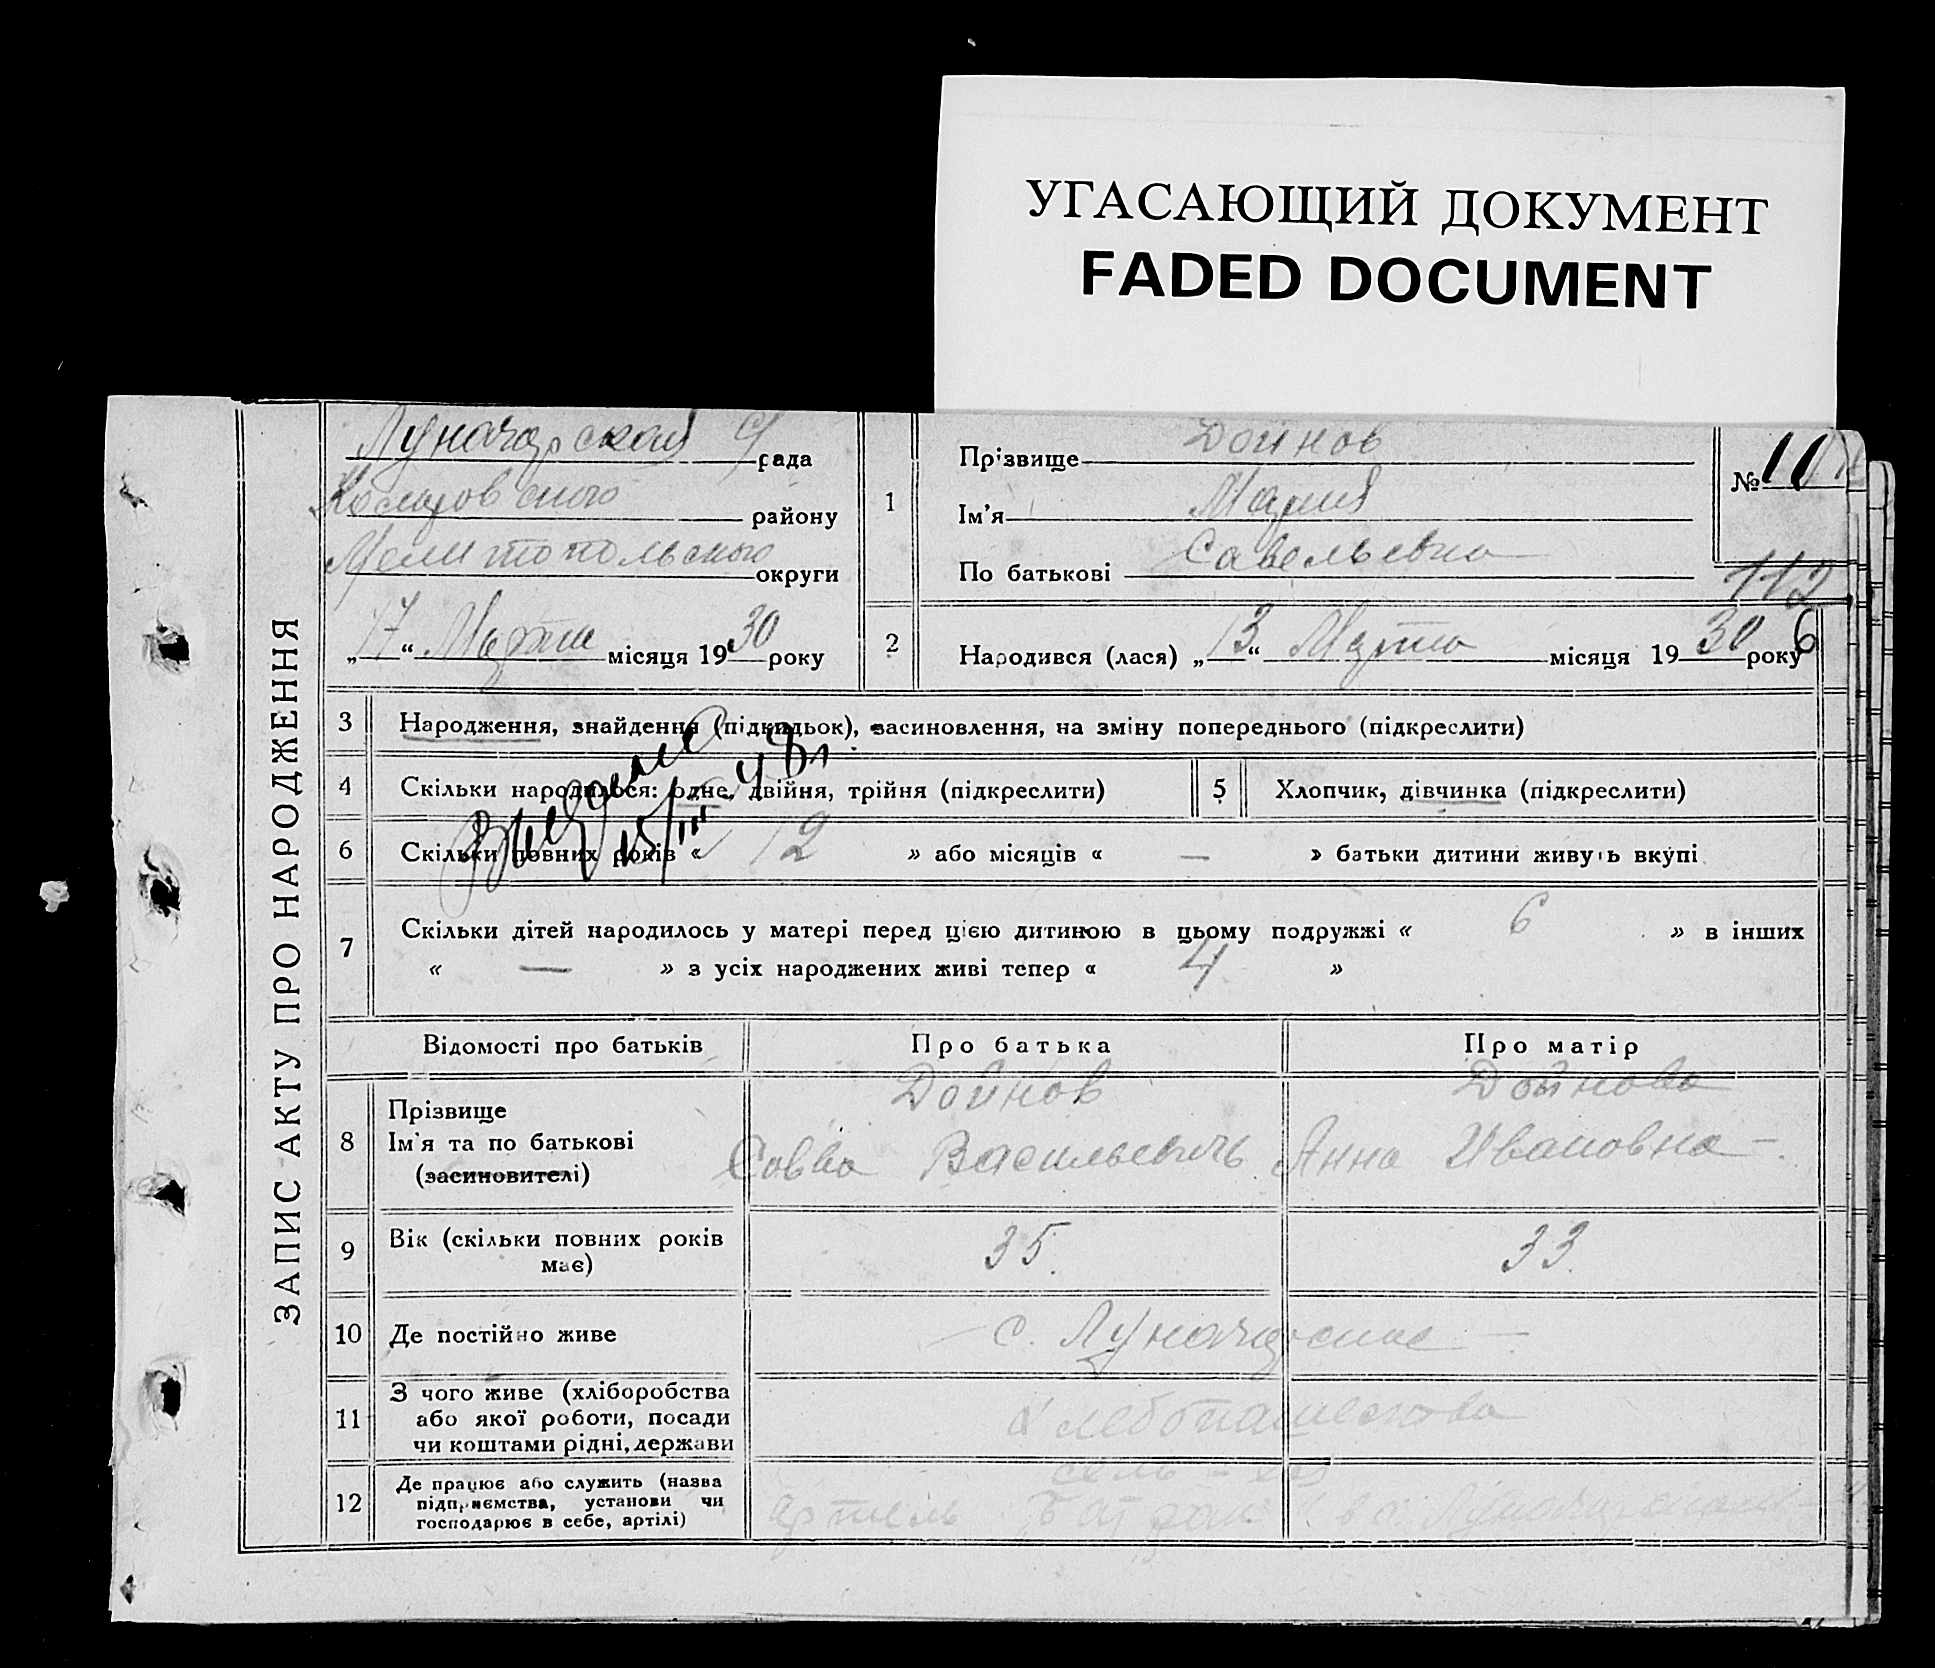 УГАСАЮЩИЙ ДОКУМЕНТ
FADED DOCUMENT
ЗАПИС АКТУ ПРО НАРОДЖЕННЯ
Луначарская с/рада
району
Мелитопольского округи
„17“ Марта місяця 1930 року
1
Прізвище Дойнов
Ім’я Мария
По батькові Савельевна
№ 11
112
6
2
Народився (лася) „13“ Марта місяця 1930 року
3 Народження, знайдення (підкидьок), засиновлення, на зміну попереднього (підкреслити)
4 Скільки народилося: одне, двійня, трійня (підкреслити)
5 Хлопчик, дівчинка (підкреслити)
15/III 48
6 Скільки повних років « 12 » або місяців « — » батьки дитини живуть вкупі
7 Скільки дітей народилось у матері перед цією дитиною в цьому подружжі « 6 » в інших
« — » з усіх народжених живі тепер « 4 »
Відомості про батьків Про батька Про матір
8
Прізвище
Ім’я та по батькові
(засиновителі)
Дойнов
Савва Васильевичь
Дойнова
Анна Ивановна
9
Вік (скільки повних років
має)
35. 33.
10 Де постійно живе
с. Луначарское
11
З чого живе (хліборобства
або якої роботи, посади
чи коштами рідні, держави
хлебопашества
12
Де працює або служить (назва
підприємства, установи чи
господарює в себе, артілі)
артель